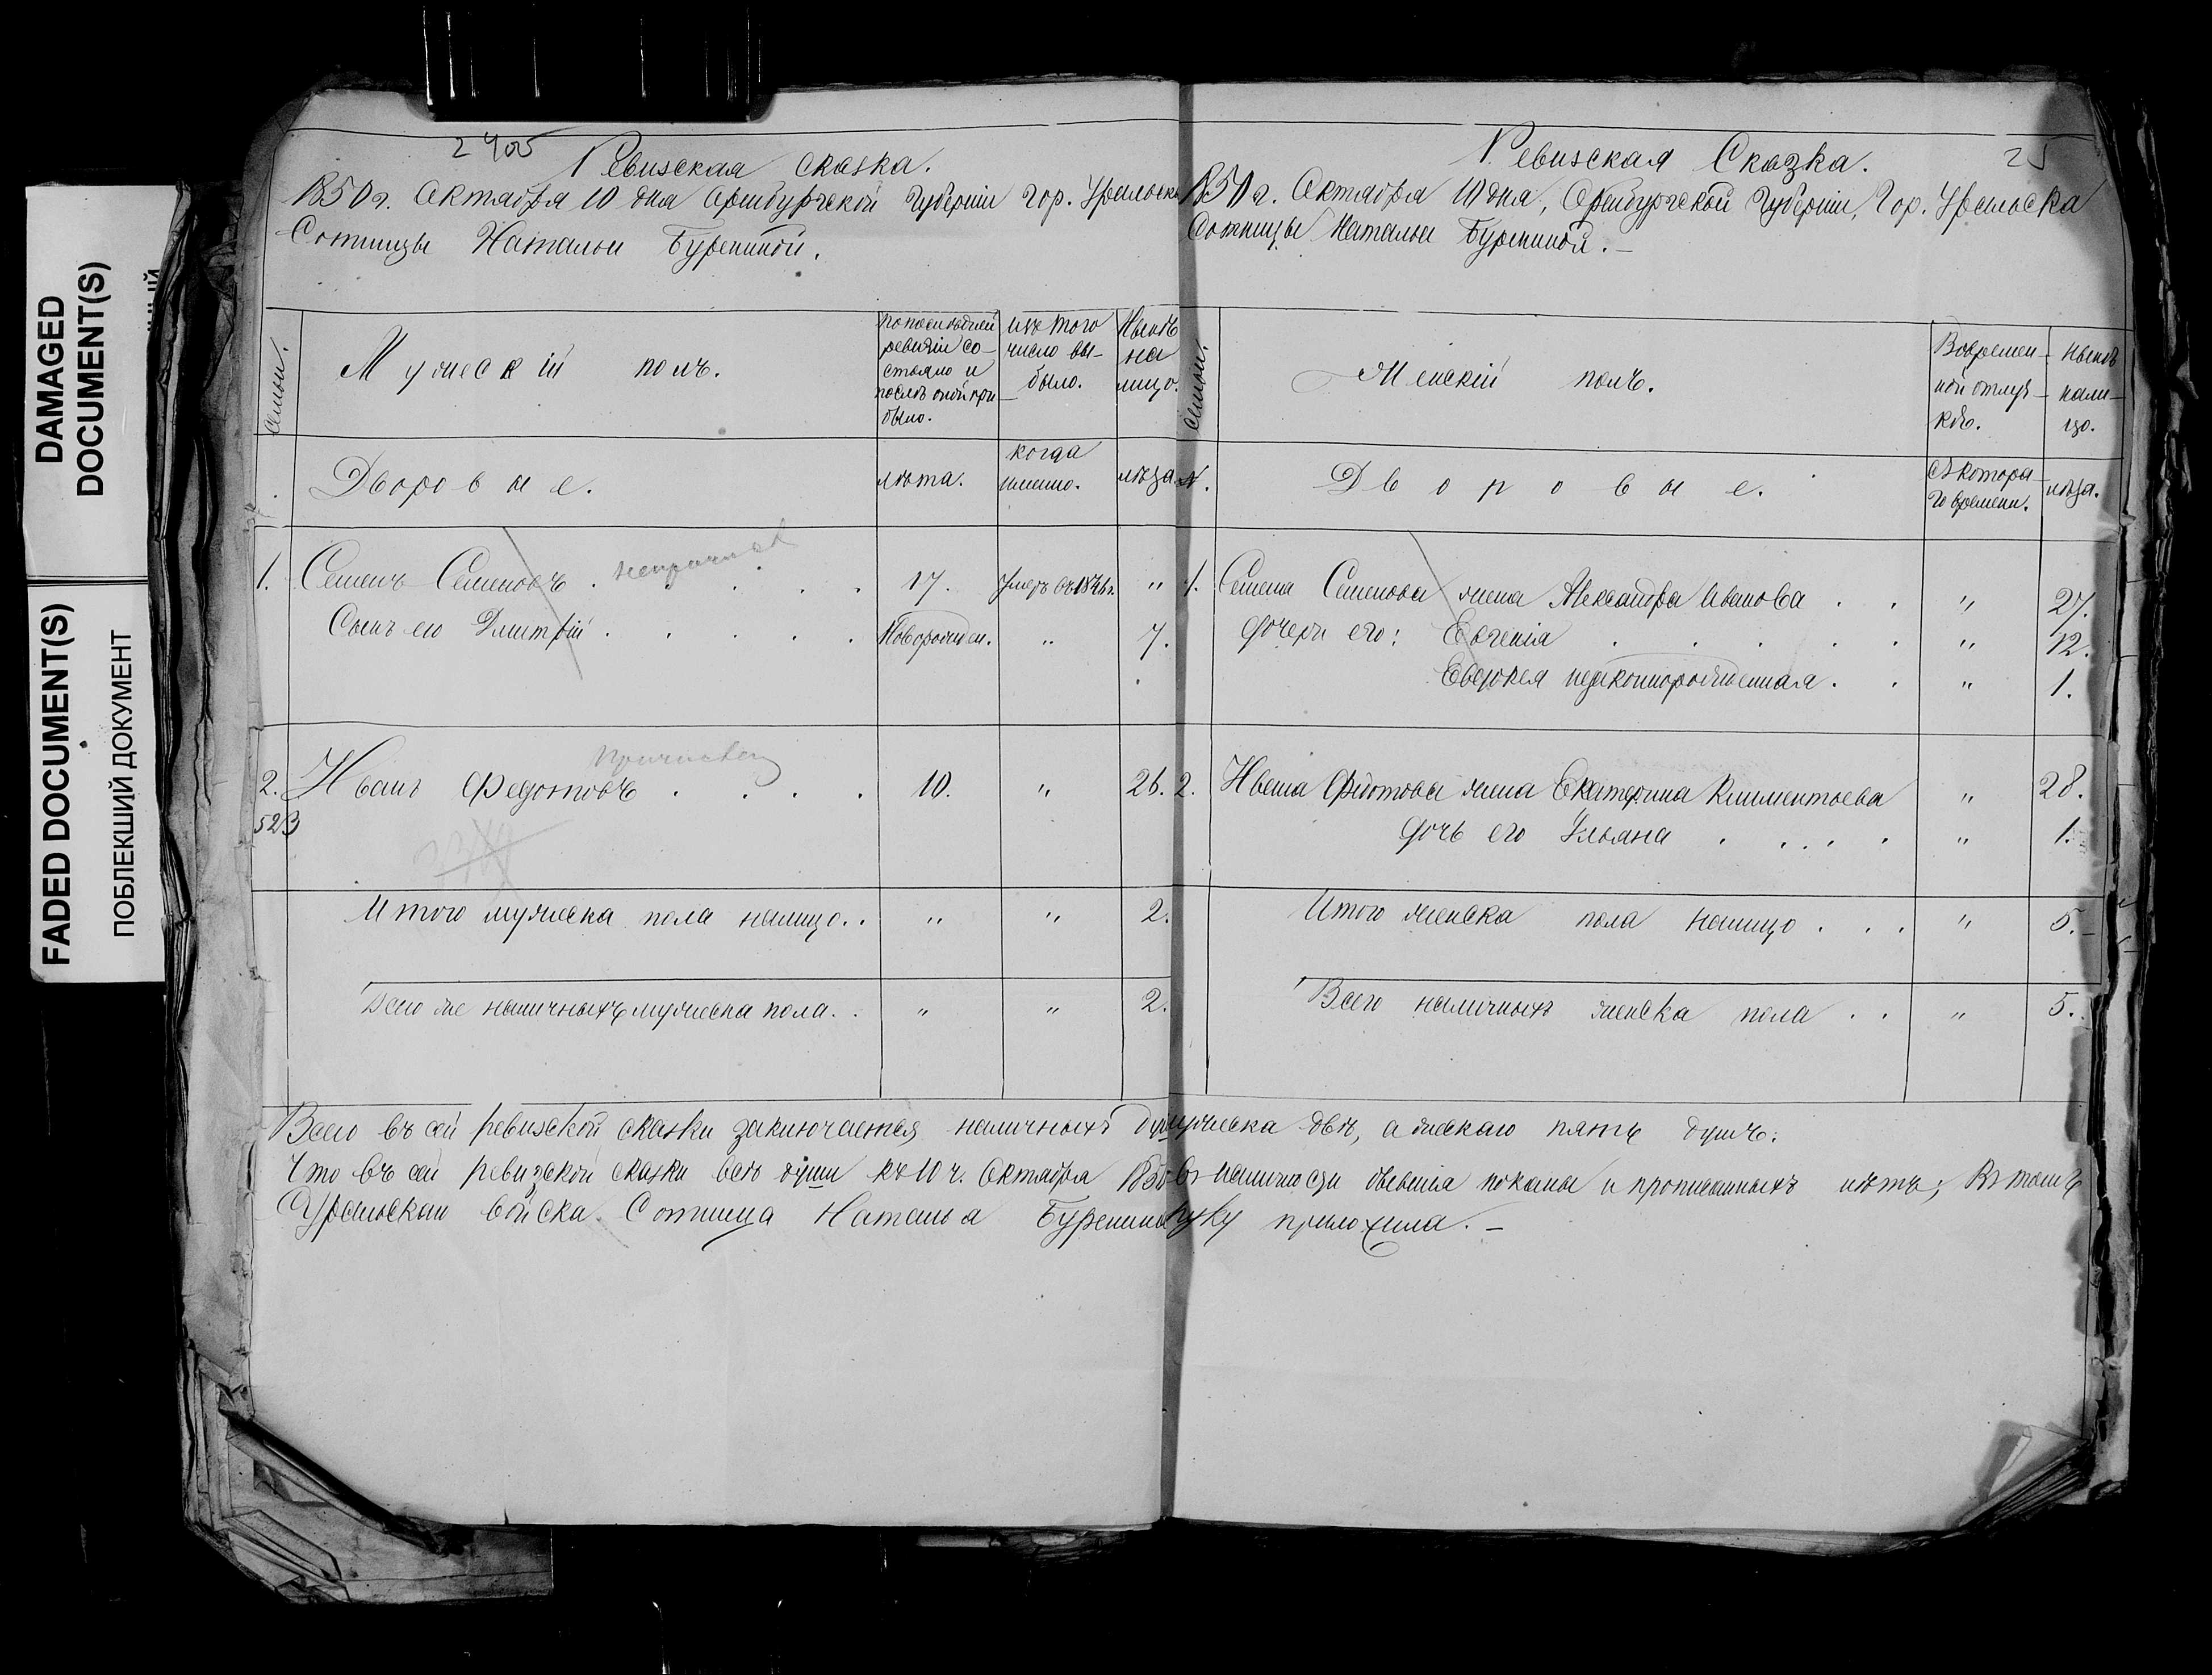 DAMAGED
DOCUMENT(S)
FADED DOCUMENT(S)
ПОБЛЕКШИЙ ДОКУМЕНТ
Ревизская сказка.
1850 г. Октября 10 дня Оренбургской Губерніи гор. Уральска
Сотницы Натальи Бурениной.
семьи.
Мужескій полъ.
по последней
ревизіи со-
стояло и
после оной при-
было.
изъ того
число вы-
было.
Ныне
на
лицо.
Дворовые.
лета.
когда
именно.
лета
1. Семенъ Семеновъ . . . . 17. Умеръ въ 1846 г. "
Сынъ его Дмитрій . . . . . Новорожден. " 7.
2. Иванъ Федотовъ . . . . 10. " 26.
523
Итого мужеска пола налицо. . " " 2.
Всего же наличныхъ мужеска пола. . " " 2.
Ревизская Сказка.
25
1850 г. Октября 10 дня, Оренбургской Губерніи, Гор. Уральска
Сотницы Натальи Бурениной. —
семьи.
Женскій полъ.
Во времен-
ной отлуч-
ке.
Ныне
нали-
цо.
№.
Дворовые.
Съ котора-
го времени.
лета.
1. Семена Семенова жена Александра Иванова . . " 27.
Дочери его: Евгенія . . . . . " 12.
незаконнорожденная . . " 1.
2. Ивана Федотова жена Екатерина Климентьева " 28.
Дочь его Ульяна . . . . . " 1.
Итого женска пола налицо . . . " 5.—
Всего наличныхъ женска пола . . " 5.
Всего въ сей ревизской сказки заключается наличныхъ мужеска две, а женскаго пять душъ:
Что въ сей ревизской сказки все души къ 10 ч. Октября 1850 въ наличности показаны и прописанныхъ нетъ; Въ томъ
Уральскаго войска Сотница Наталья Буренина руку приложила. —